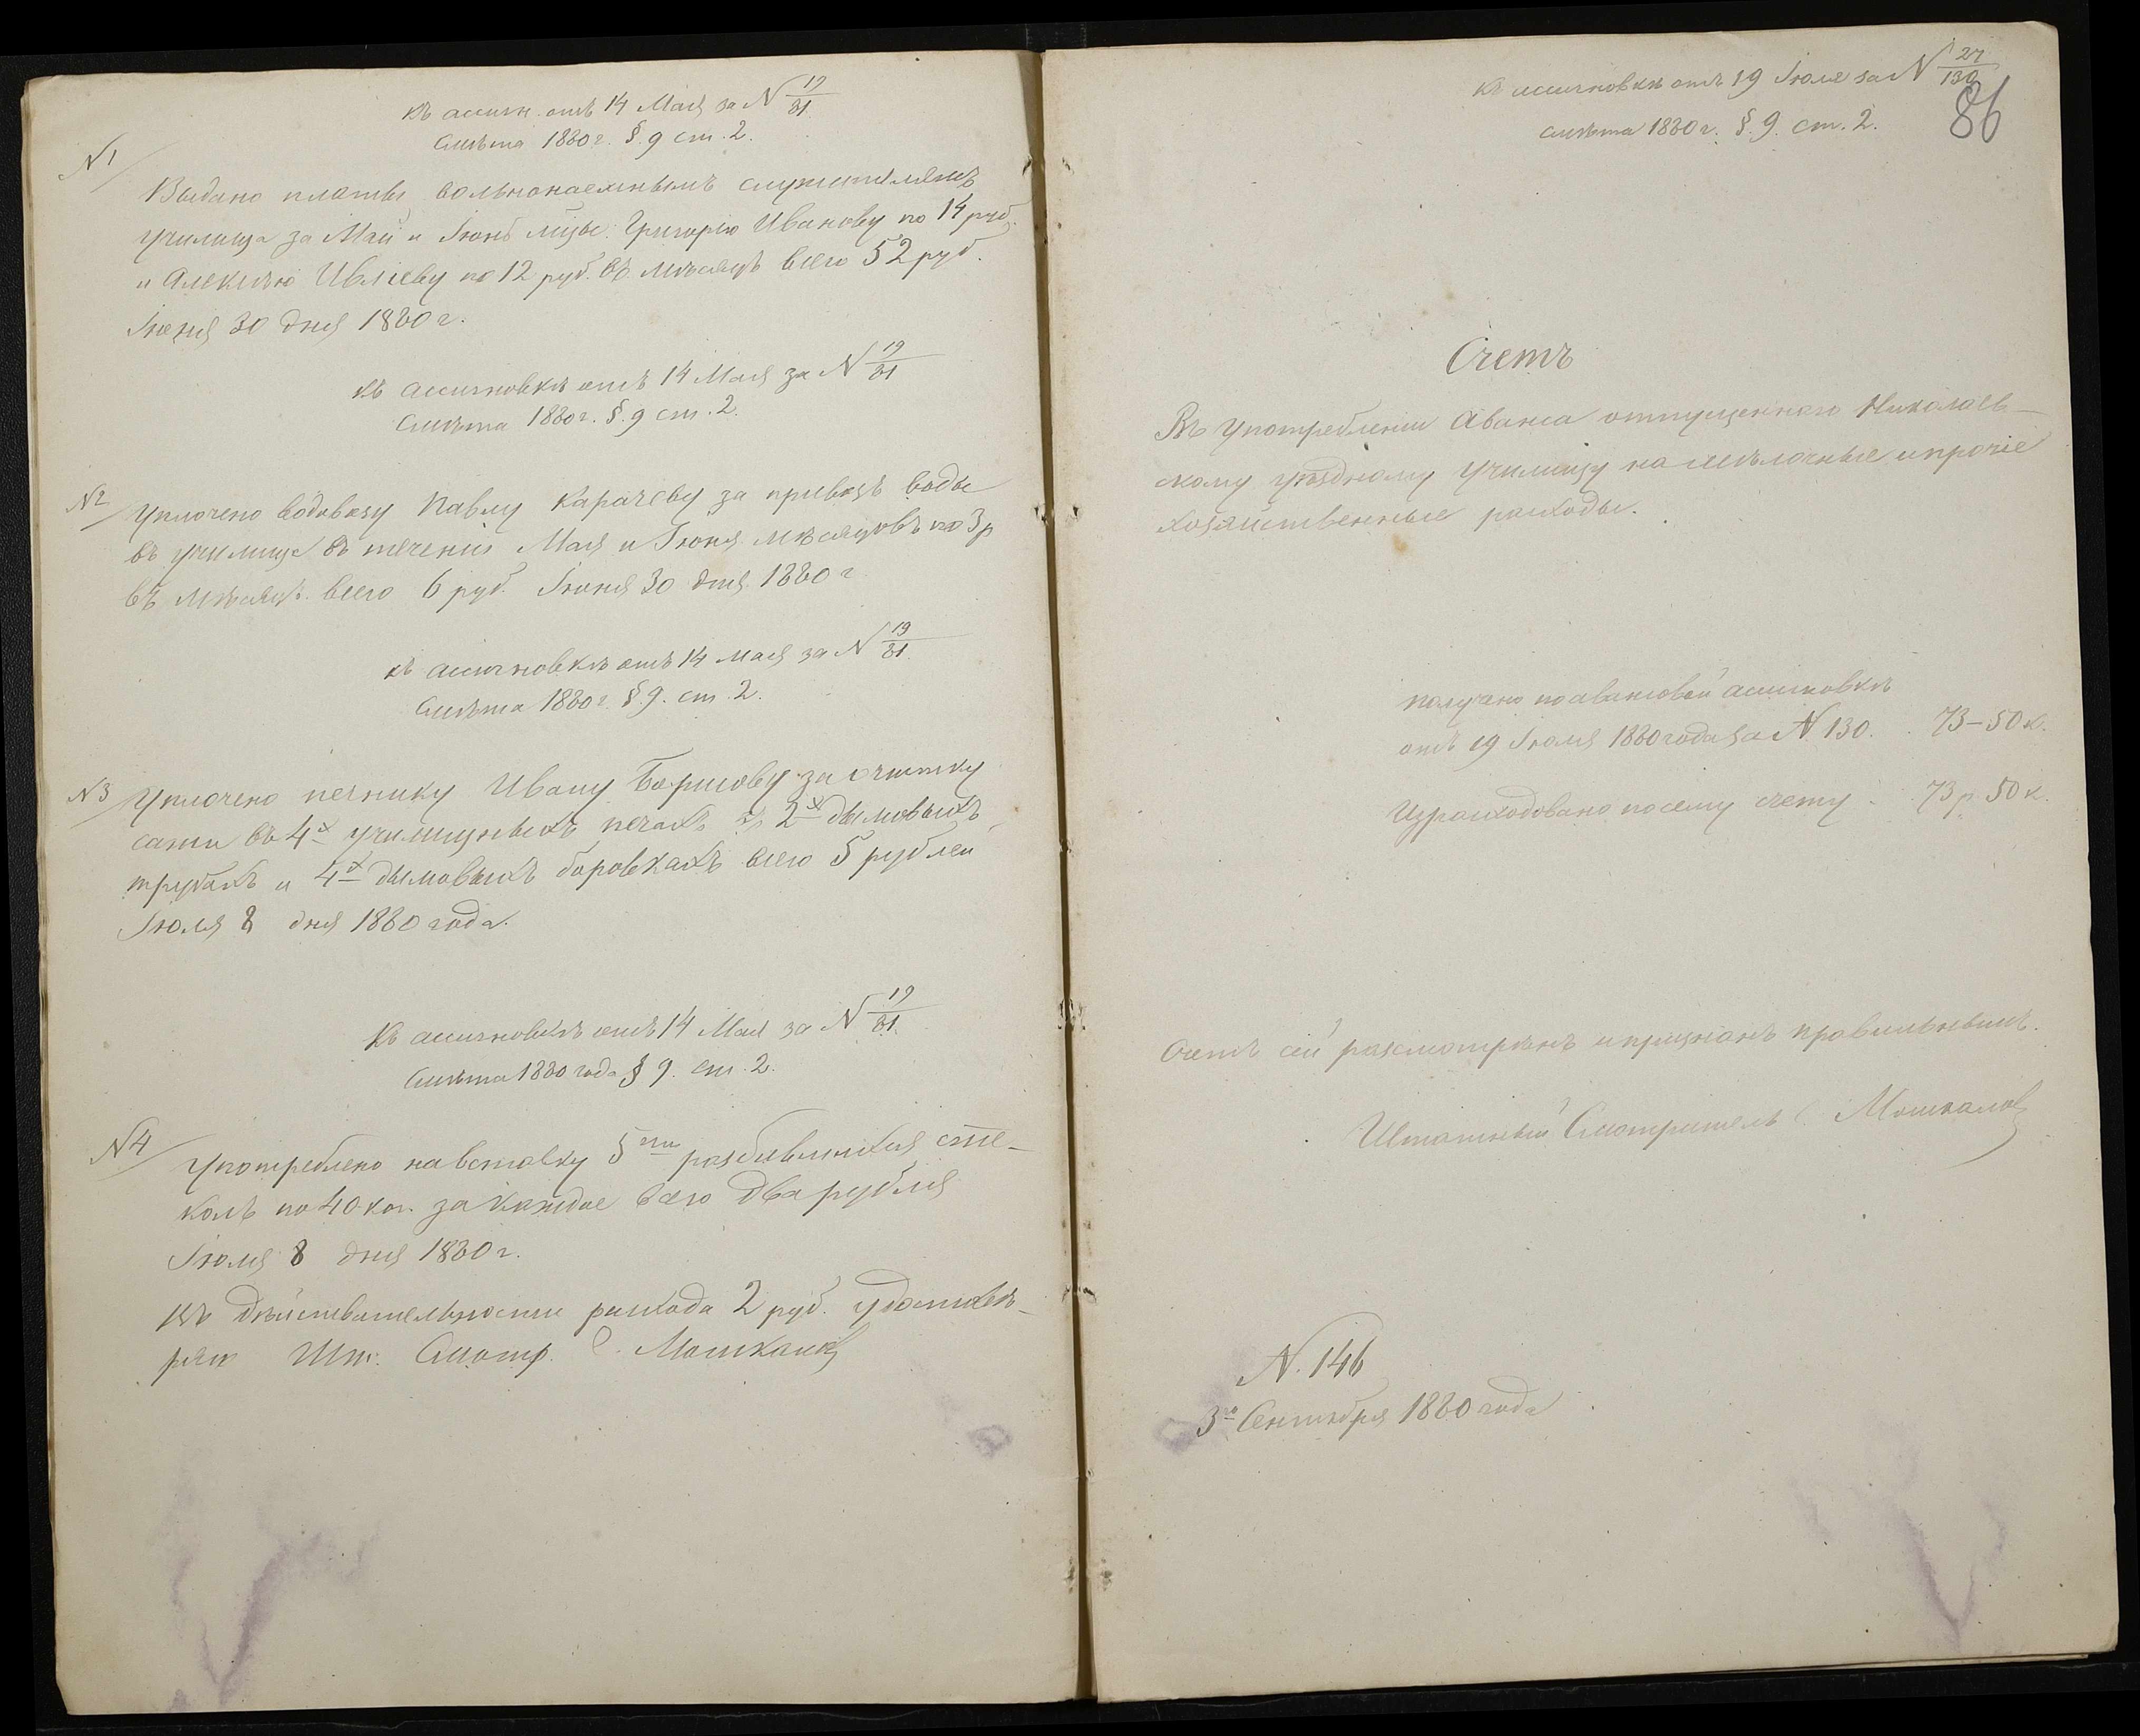 Къ ассигн. отъ 14 Мая за N 19/81
Смѣта 1880 г. §. 9 ст. 2.
N1
Выдано платы вольнонаемнымъ служителямъ
училища за Май и Іюнь м̃цы: Григорію Иванову по 14 руб.
и Алексѣю Ивлieву по 12 руб. въ мѣсяцъ всего 52 руб.
Іюня 30 дня 1880 г.
Къ ассигновкѣ отъ 14 Мая за N 19/81
Смѣта 1880 г. §. 9 ст. 2.
N2
Уплочено водовозу Павлу Карачеву за привозъ воды
въ училище въ теченіи Мая и Іюня мѣсяцовъ по 3 р
въ мѣсяцъ. всего 6 руб. Іюня 30 дня 1880 г
къ ассигновкѣ отъ 14 мая за N 19/81
Смѣта 1880 г. §. 9. ст. 2.
N3
Уплочено печнику Ивану Борисову за очистку
сажи въ 4х училищныхъ печахъ, 2х дымовыхъ
трубахъ и 4х дымовыхъ боровкахъ всего 5 рублей
Іюля 8 дня 1880 года.
Къ ассигновкѣ отъ 14 Мая за N 19/81
Смѣта 1880 года § 9. ст. 2.
N4
Употреблено на вставку 5ти разбившихся сте-
колъ по 40 коп. за каждое всего два рубля
Іюля 8 дня 1880 г.
Въ дѣйствительности расхода 2 руб. удостовѣ-
ряю Шт. Смотр. С. Мошкановъ
Къ ассигновкѣ отъ 19 Іюля за N 27/130
смѣта 1880 г. §. 9. ст. 2.
86
Счетъ
Въ употребленіи Аванса отпущеннаго Николаев-
скому уѣздному училищу на мѣлочные и прочіе
хозяйственные расходы.
получено по авансовой ассигновкѣ
отъ 19 Іюля 1880 года за N 130. 73 – 50 к.
Израсходовано по сему счету - 73 р. 50 к.
Счетъ сей разсмотрѣнъ и признанъ правильнымъ.
Штатный Смотритель С. Мошкановъ
N. 146
3го Сентября 1880 года